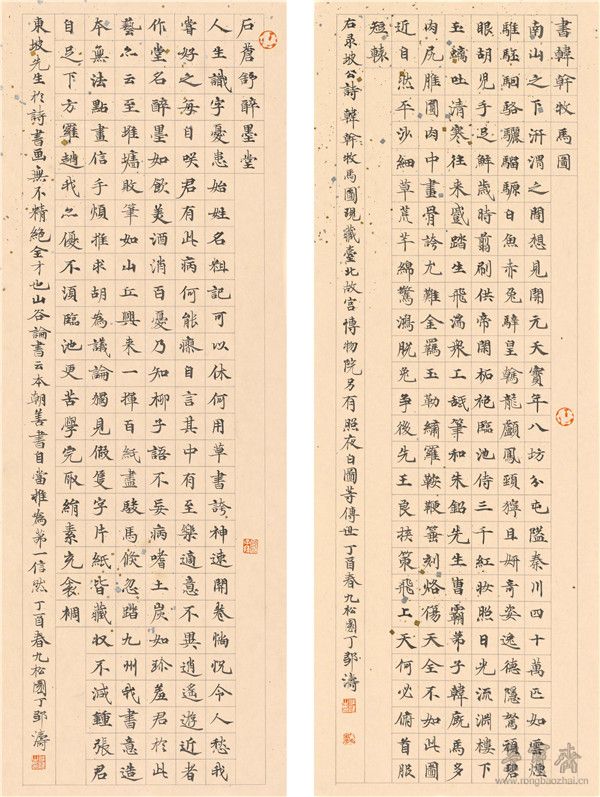 書韓幹牧馬圖
南山之下汧渭之間想見開元天寶年八坊分屯隘秦川四十萬匹如雲煙
騅駓駰駱驪騮騵白魚赤兔騂皇鶾龍顱鳳頸獰且妍奇姿逸德隱駑頑碧
眼胡兒手足鮮歲時翦刷供帝閑柘袍臨池侍三千紅妝照日光流淵樓下
玉螭吐清寒往來蹙踏生飛湍衆工舐筆和朱鉛先生曹霸弟子韓廄馬多
肉尻脽圓肉中畫骨誇尤難金羈玉勒繡羅鞍鞭箠刻烙傷天全不如此圖
近自然平沙細草荒芊綿驚鴻脫兔爭後先王良挾策飛上天何必俯首服
短轅
右录坡公詩韓幹牧馬圖現藏臺北故宮博物院另有照夜白圖等傳世丁酉春九松園丁鄔濤
石蒼舒醉墨堂
人生識字憂患始姓名粗記可以休何用草書誇神速開卷惝怳令人愁我
嘗好之每自笑君有此病何能瘳自言其中有至樂適意不異逍遙遊近者
作堂名醉墨如飲美酒消百憂乃知柳子語不妄病嗜土炭如珍羞君於此
藝亦云至堆墻敗筆如山丘興來一揮百紙盡駿馬倐忽踏九州我書意造
本無法點畫信手煩推求胡為議論獨見假隻字片紙皆藏收不減鍾張君
自足下方羅趙我亦優不須臨池更苦學完取絹素充衾裯
東坡先生於詩書畫無不精絕全才也山谷論書云本朝善書自當推為第一信然丁酉春九松園丁鄔濤
榮寶齋
www.rongbaozhai.cn